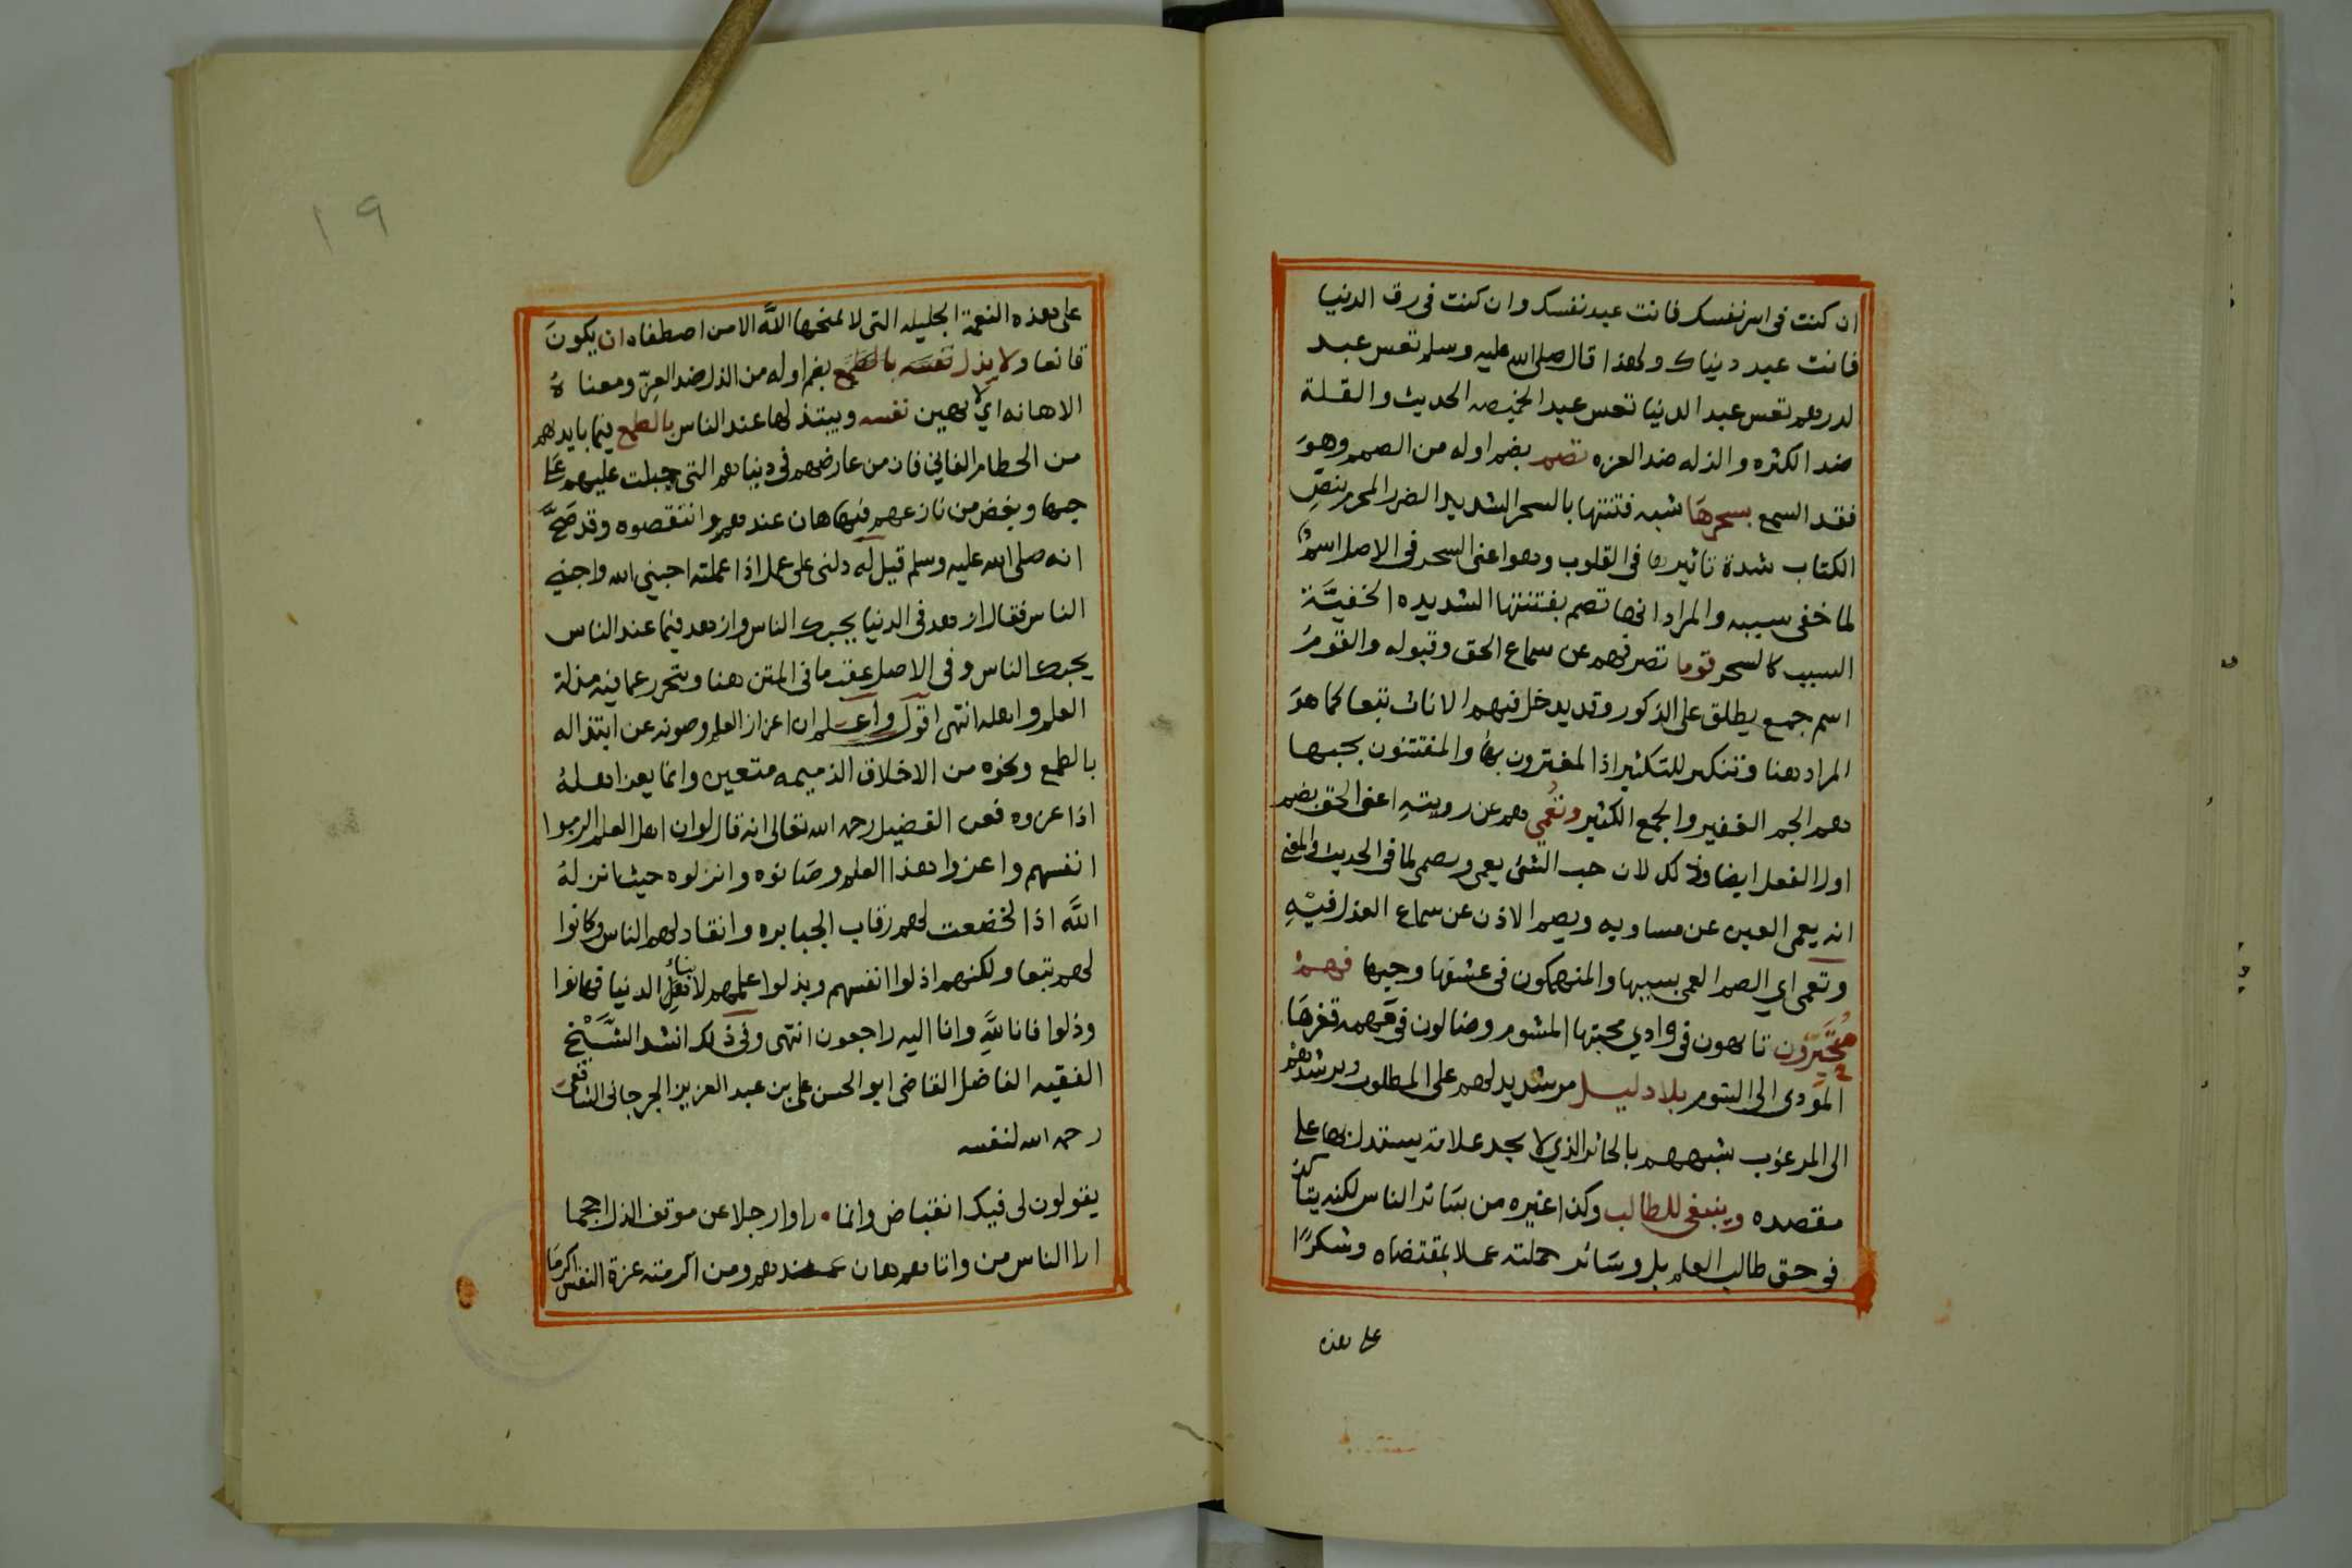 ان كنت في اسر نفسك فانت عبد نفسك وان كنت في رق الدنيا
فانت عبد دنياك ولهذا قال صلى الله عليه وسلم تعس عبد
لدرهم تعس عبد الدنيا تعس عبد الخميصه الحديث والقلة
ضد الكثره والذله ضد العزه تصم بضم اوله من الصمم وهو
فقد السمع بسحرها شبه فتنتها بالسحر الشديد الضرر المحرم بنص
الكتاب شدة تاثيرها في القلوب وهو اعني السحر في الاصل اسم
لما خفي سببه والمراد انها تصم بفتنتها الشديده الخفيّة
السبب كالسحر قوما تصرفهم عن سماع الحق وقبوله والقوم
اسم جمع يطلق على الذكور وقد يدخل فيهم الاناث تبعا كما هو
المراد هنا وتنكير للتكثير اذ المغترون بها والمفتتنون بحبها
هم الجم الغفير والجمع الكثير وتُعمي هم عن رويته اعني الحق بضم
اول الفعل ايضا وذلك لان حب الشئ يعمي ويصم لما في الحديث والمعنى
انه يعمي العين عن مساويه ويصم الاذن عن سماع العذل فيه
وتعمي اي الصم العمي بسببها والمنهمكون في عشقها وحبها فهم
متحيّرون تايهون في وادي محبتها المشوم وضالون في مهمه قفرها
المؤدي الى الشوم بلا دليل مرشد يدلهم على المطلوب ويرشدهم
الى المرغوب شبههم بالحائر الذي لا يجد علامة يستدل بها على
مقصده وينبغي للطالب وكذا غيره من سائر الناس لكنه يتاكد
في حق طالب العلم بل وسائر حملته عملا بمقتضاه وشكرًا
على هذه
١٩
على هذه النعمة الجليله التي لا يمنحها اللّه الا من اصطفاه ان يكون
قانعا ولا يذل نفسه بالطمع بضم اوله من الذل ضد العزّ ومعناه
الاهانه اي لا يهين نفسه ويبتذلها عند الناس بالطمع فيما بايديهم
من الحطام الفاني فان من عارضهم في دنياهم التي جبلت عليهم على
حبها وبغض من نازعهم فيها هان عندهم وانتقصوه وقد صحّ
انه صلى الله عليه وسلم قيل له دلني على عمل اذا عملته احبني الله واحبني
الناس فقال ازهد في الدنيا يحبك الناس وازهد فيما عند الناس
يحبك الناس وفي الاصل عقب ما في المتن هنا ويتحرز عما فيه مذلة
العلم واهله انتهى اقول واعلم ان اعزاز العلم وصونه عن ابتذاله
بالطمع ونحوه من الاخلاق الذميمه متعين وانما يعز اهله
اذا عزوه فعن الفضيل رحمه الله تعالى انه قال لو ان اهل العلم اكرموا
انفسهم واعزوا هذا العلم وصانوه وانزلوه حيث انزله
اللّه اذا لخضعت لهم رقاب الجبابره وانقاد لهم الناس وكانوا
لهم تبعا ولكنهم اذلوا انفسهم وبذلوا علمهم لابناء الدنيا فهانوا
وذلوا فانا للّه وانا اليه راجعون انتهى وفي ذلك انشد الشّيخ
الفقيه الفاضل القاضي ابو الحسن علي بن عبد العزيز الجرجاني الشافعي
رحمه الله لنفسه
يقولون لي فيك انقباض وانما • راوا رجلا عن موقف الذل احجما
ارا الناس من داناهم هان عندهم ومن اكرمته عزة النفس اكرما